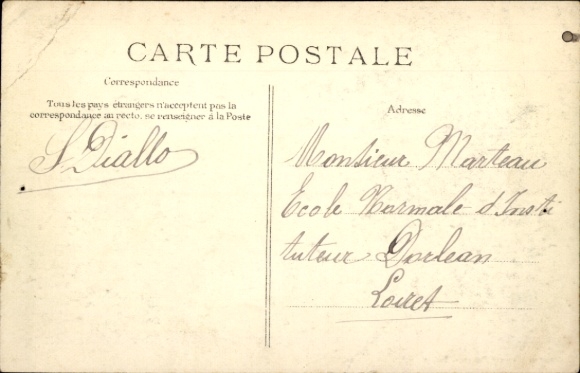 CARTE POSTALE
Correspondance
Tous les pays étrangers n'acceptent pas la
correspondance au recto, se renseigner à la Poste
S Diallo
Adresse
Monsieur Marteau
Ecole Normale d'Insti
tuteur Dorlean
Loiret